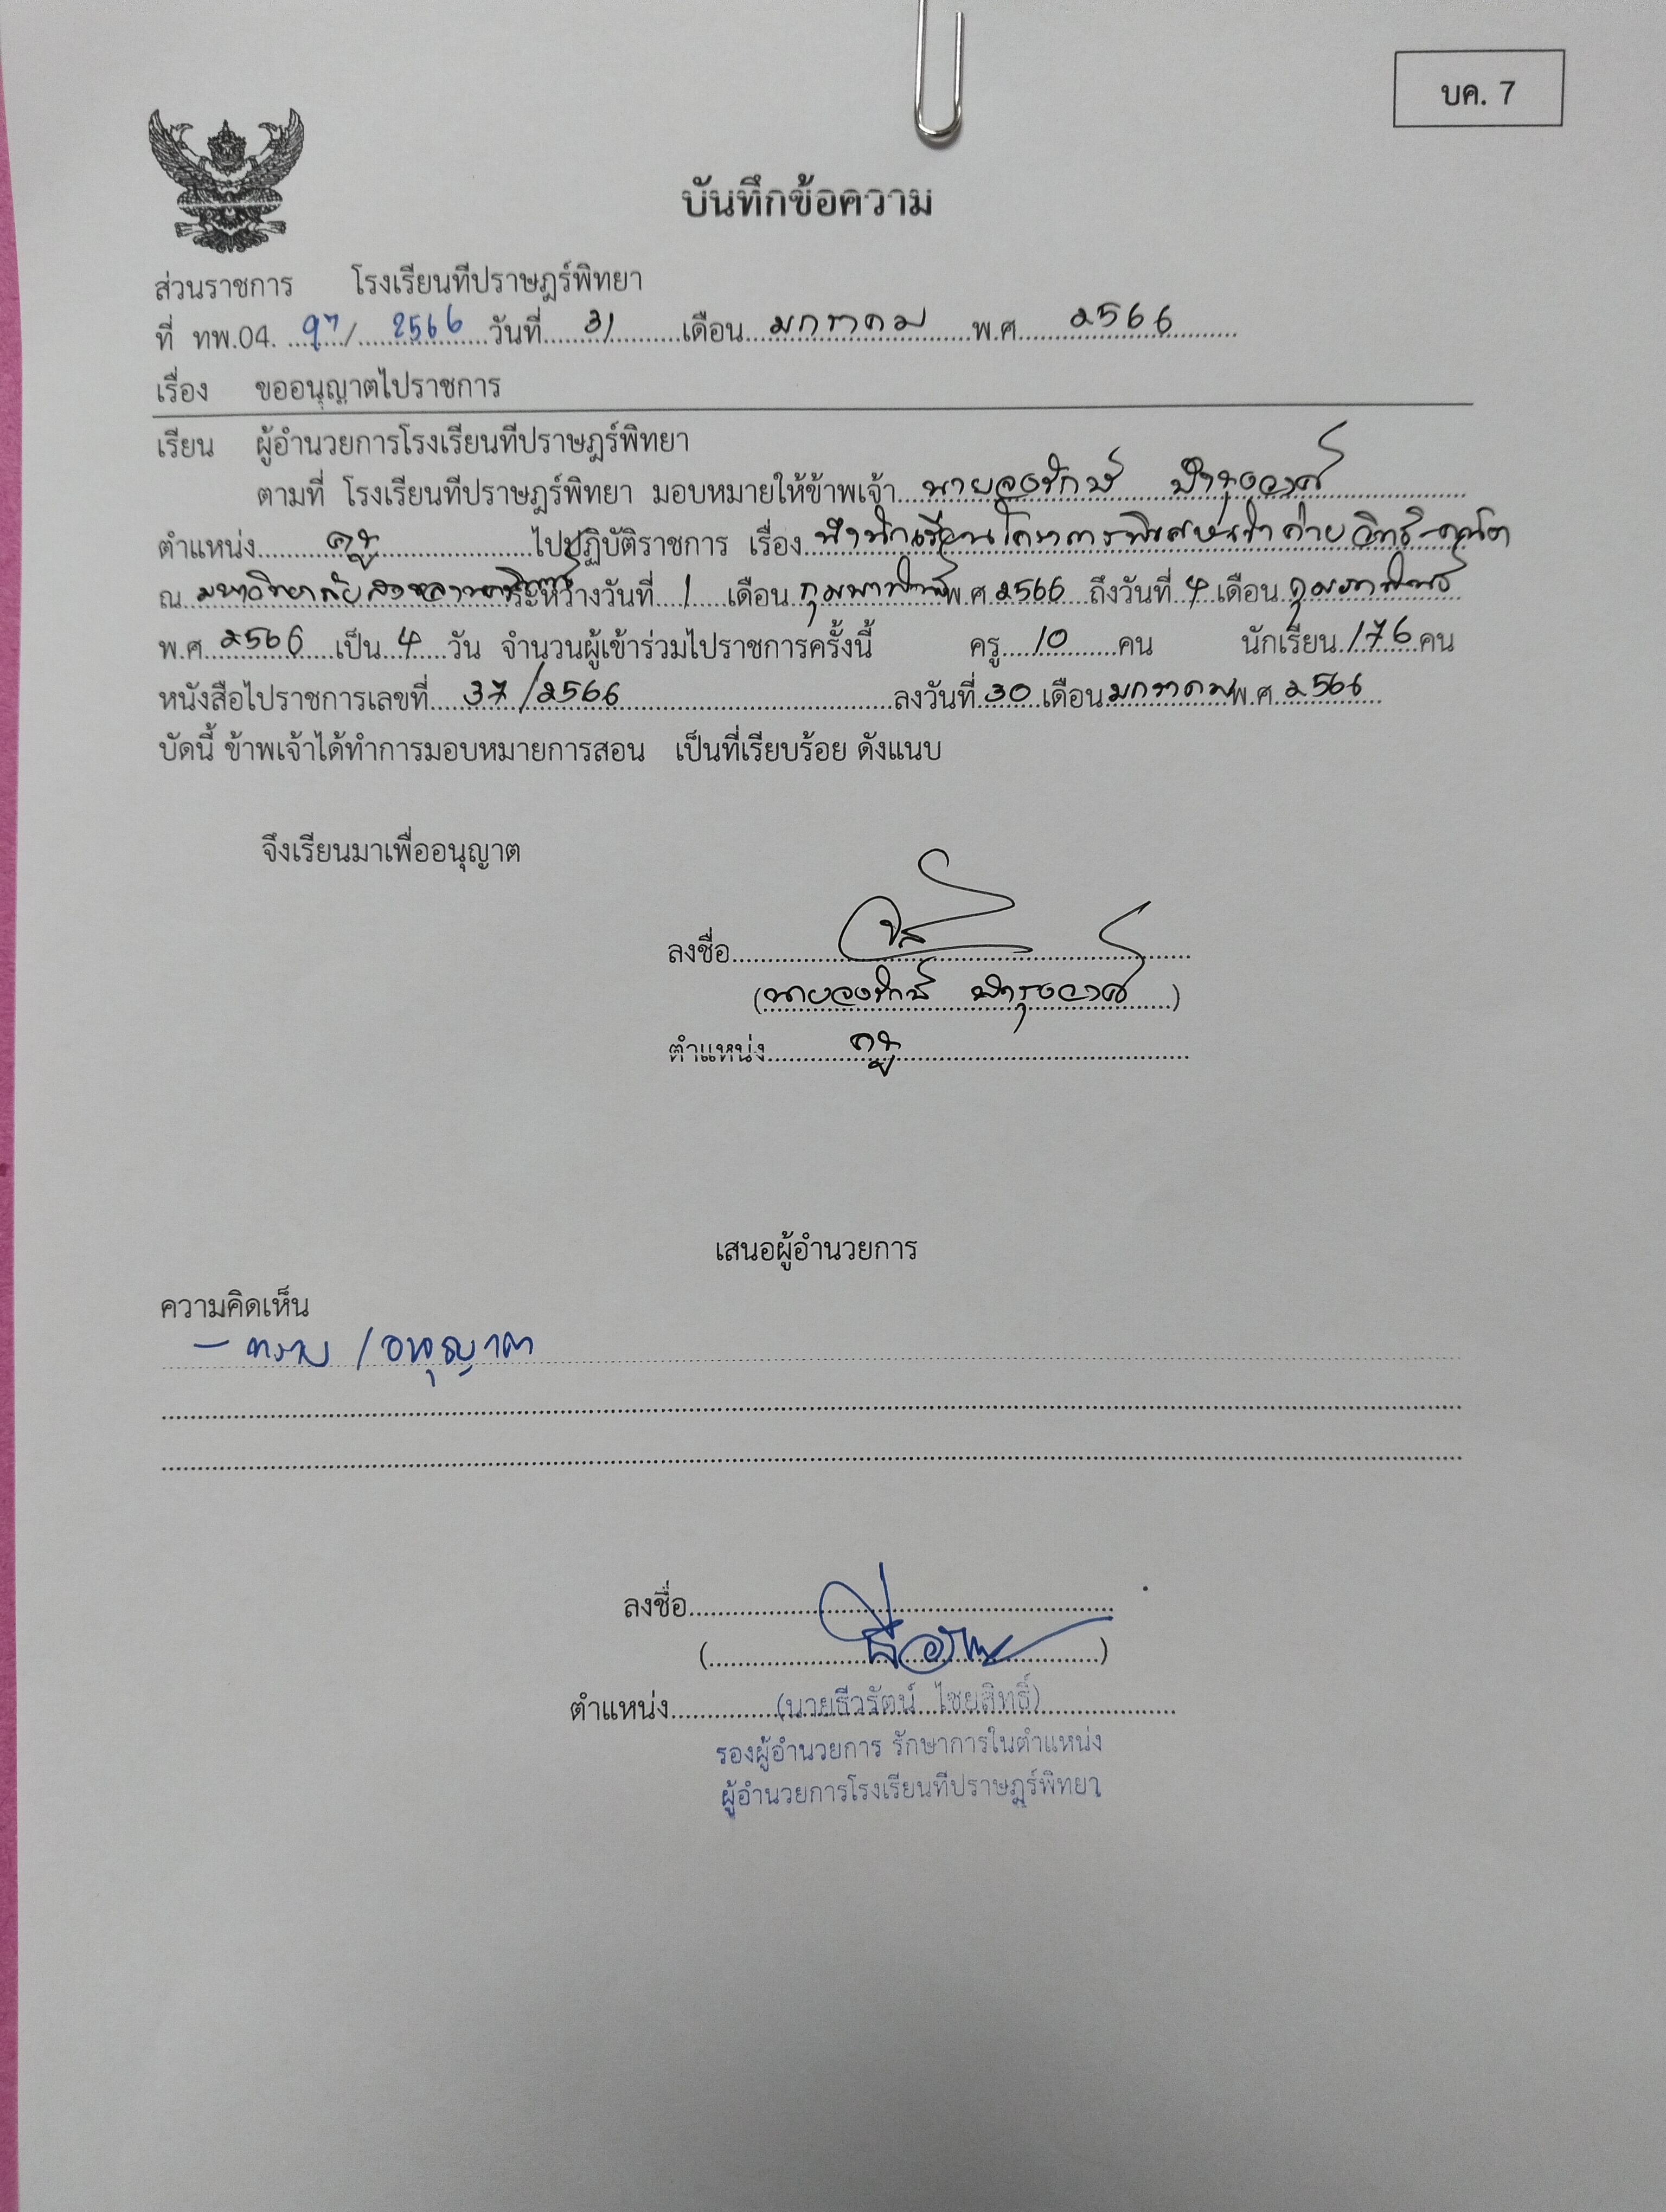 บค. 7
บันทึกข้อความ
ส่วนราชการ โรงเรียนทีปราษฎร์พิทยา
ที่ ทพ.04. 97/ 2566 วันที่ 31 เดือน มกราคม พ.ศ. ๒566
เรื่อง ขออนุญาตไปราชการ
เรียน ผู้อำนวยการโรงเรียนทีปราษฎร์พิทยา
ตามที่ โรงเรียนทีปราษฎร์พิทยา มอบหมายให้ข้าพเจ้า นายจงรักษ์ บำรุงวงศ์
ตำแหน่ง ครู ไปปฏิบัติราชการ เรื่อง นำนักเรียนโครงการพิเศษเข้าค่ายวิทย์-คณิต
ณ มหาวิทยาลัยสงขลานครินทร์ ระหว่างวันที่ 1 เดือน กุมภาพันธ์ พ.ศ ๒566 ถึงวันที่ 4 เดือน กุมภาพันธ์
พ.ศ. ๒566 เป็น 4 วัน จำนวนผู้เข้าร่วมไปราชการครั้งนี้ ครู 10 คน นักเรียน 176 คน
หนังสือไปราชการเลขที่ 37/๒566 ลงวันที่ 30 เดือน มกราคม พ.ศ. ๒566
บัดนี้ ข้าพเจ้าได้ทำการมอบหมายการสอน เป็นที่เรียบร้อย ดังแนบ
จึงเรียนมาเพื่ออนุญาต
ลงชื่อ
(นายจงรักษ์ บำรุงวงศ์)
ตำแหน่ง ครู
เสนอผู้อำนวยการ
ความคิดเห็น
- ทราบ / อนุญาต
ลงชื่อ
( )
ตำแหน่ง (นายธีวรัตน์ ไชยสิทธิ์)
รองผู้อำนวยการ รักษาการในตำแหน่ง
ผู้อำนวยการโรงเรียนทีปราษฎร์พิทยา